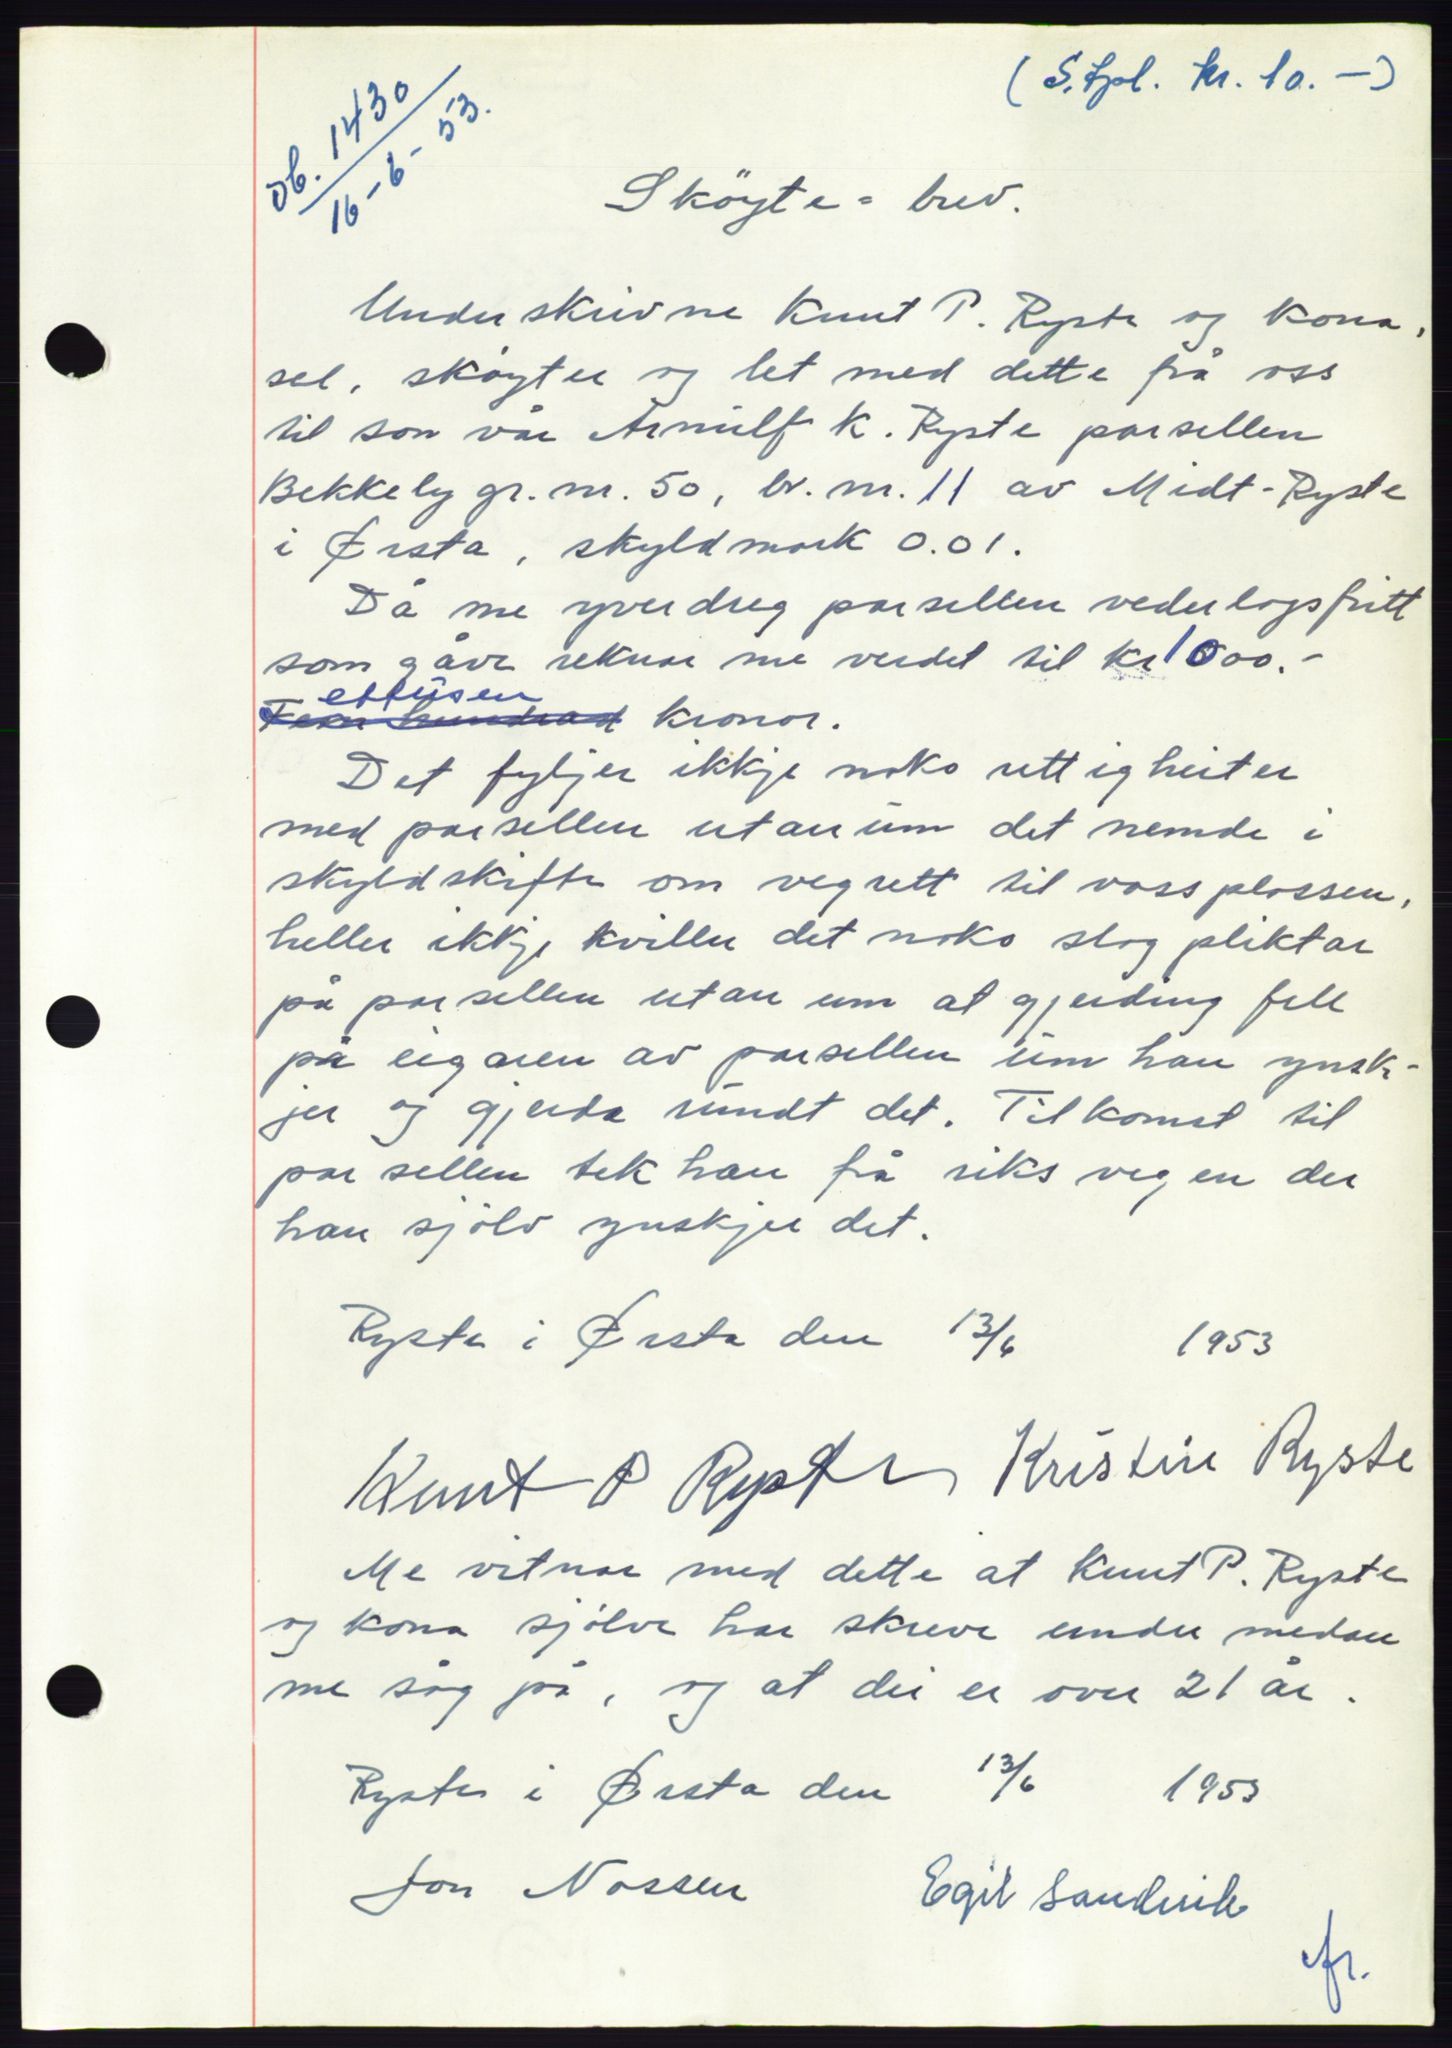 (S.tpl. kr. 10.-)
Db. 1430
16-6-53.
Sköyte = brev.
Underskrivne Knut P. Ryste og kona,
sel, skøyter og let med dette frå oss
til son vår Arnulf K. Ryste parsellen
Bekkely gr. nr. 50, br. nr. 11 av Midt-Ryste
i Ørsta, skyldmark 0.01.
Då me yverdreg parsellen vederlagsfritt
som gåve reknar me verdet til kr 1000.-
ettusen
Fem hundrad kronor.
Det fyljer ikkje noko rettigheiter
med parsellen utan um det nemde i
skyldskifte om vegrett til vassplassen,
heller ikkje kviller det noko slag pliktar
på parsellen utan um at gjerding fell
på eigaren av parsellen um han ynsk-
jer og gjerda rundt det. Tilkomst til
parsellen tek han frå riksvegen der
han sjölv ynskjer det.
Ryste i Ørsta den 13/6 1953
Knut P Ryste Kristine Ryste
Me vitnar med dette at Knut P. Ryste
og kona sjölve har skreve under medan
me såg på, og at dei er over 21 år.
Ryste i Ørsta den 13/6 1953
Jon Nossen Egil Sandvik
fr.